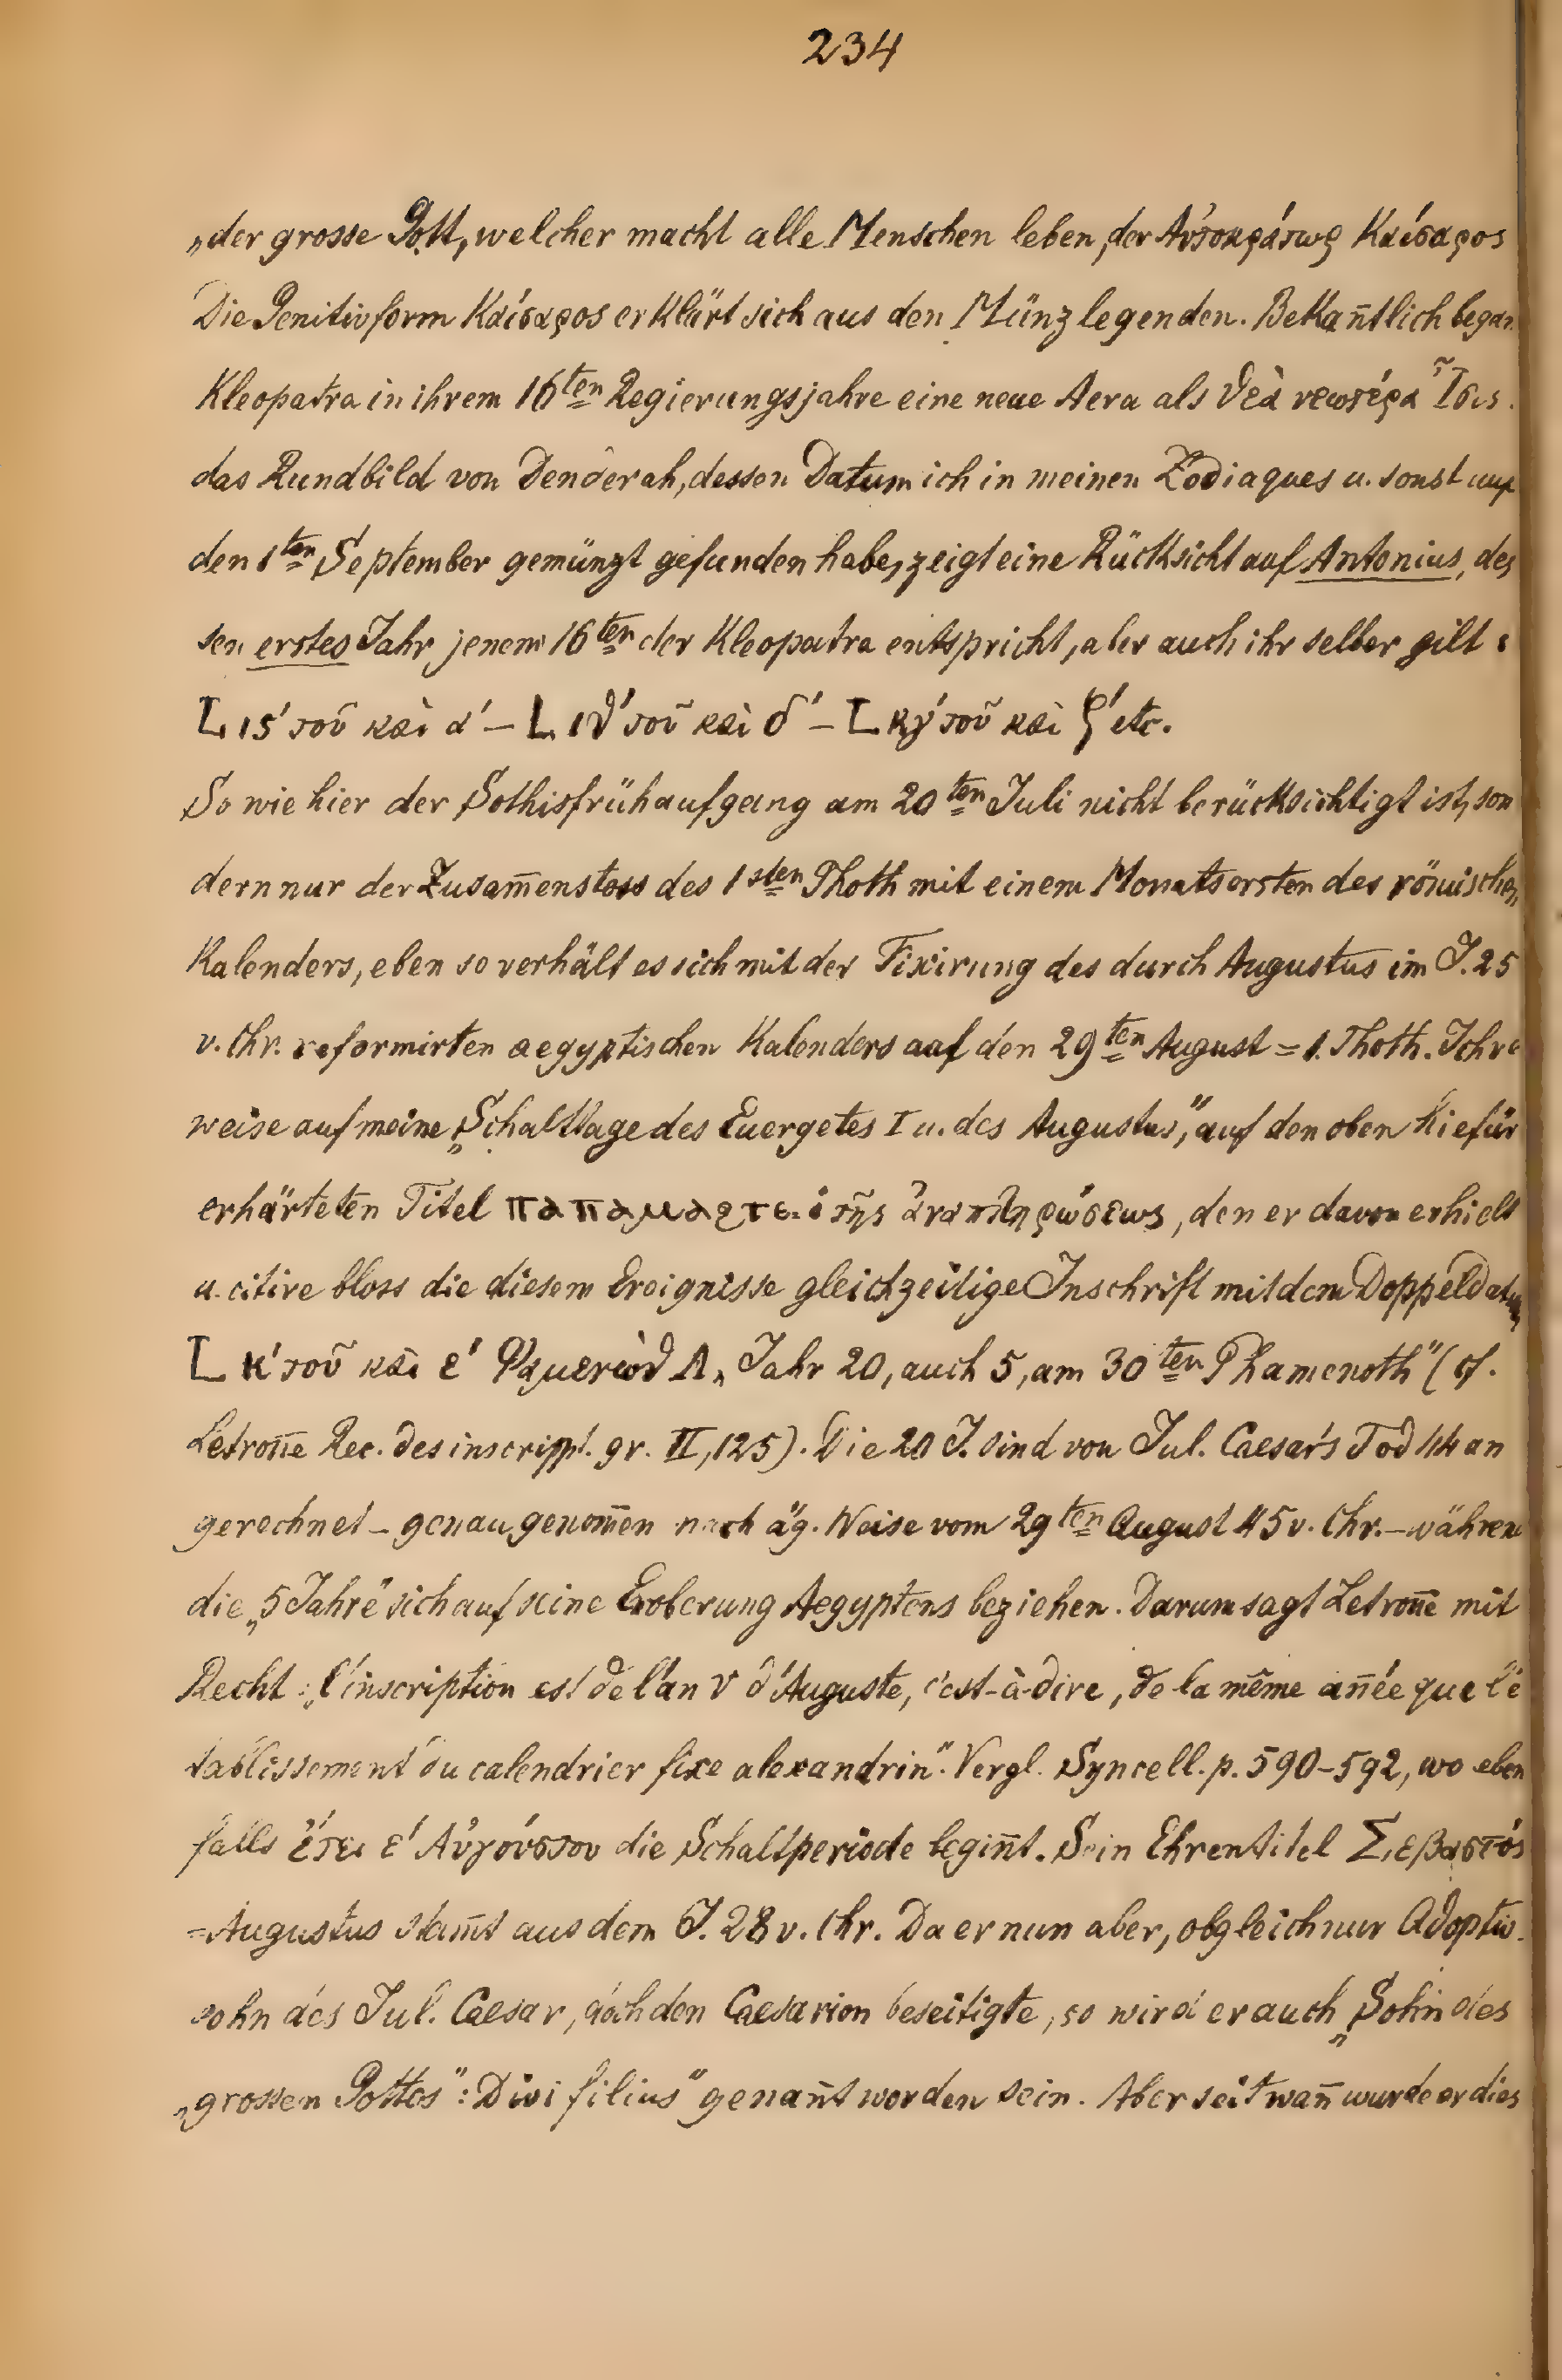 234
„der grosse Gott, welcher macht alle Menschen leben, der Αὐτοκράτωρ Καίσαρος
Die Genitivform Καίσαρος erklärt sich aus den Münzlegenden. Bekan̄tlich began
Kleopatra in ihrem 16ten Regierungsjahre eine neue Aera als θεὰ νεωτέρα Ἶσις.
das Rundbild von Denderah, dessen Datum ich in meinen Zodiaques u. sonst auf
den 1ten September gemünzt gefunden habe, zeigt eine Rücksicht auf Antonius, des
sen erstes Jahr jenem 16ten der Kleopatra entspricht, aber auch ihr selber gilt:
L ις′ τοῦ καὶ α′ – L ιθ′ τοῦ καὶ δ′ – L κγ′ τοῦ καὶ ζ′ etc.
So wie hier der Sothisfrühaufgang am 20ten Juli nicht berücksichtigt ist, son
dern nur der Zusam̄enstoss des 1sten Thoth mit einem Monatsersten des römischen
Kalenders, eben so verhält es sich mit der Fixirung des durch Augustus im J. 25
v. Chr. reformirten aegyptischen Kalenders auf den 29ten August = 1. Thoth. Ich ve
weise auf meine „Schalttage des Euergetes I u. des Augustus", auf den oben hiefür
erhärteten Titel ⲡⲁⲡⲁⲙⲁϩⲧⲉ: ὁ τῆς ἀναπληρώσεως, den er davon erhielt
u. citire bloss die diesem Ereignisse gleichzeitige Inschrift mit dem Doppeldatum
L κ′ τοῦ καὶ ε′ Φαμενὼθ Λ „Jahr 20, auch 5, am 30ten Phamenoth" (cf.
Letron̄e Rec. des inscript. gr. II, 125). Die 20 J. sind von Jul. Caesar's Tod 44 an
gerechnet – genau genom̄en nach äg. Weise vom 29ten August 45 v. Chr. – währen
die „5 Jahre" sich auf seine Eroberung Aegyptens beziehen. Darum sagt Letron̄e mit
Recht: „l'inscription est de l'an V d'Auguste, c'est-à-dire, de la même an̄ée que l'é
tablissement du calendrier fixe alexandrin". Vergl. Syncell. p. 590–592, wo eben
falls ἔτει ε′ Αὐγούστου die Schaltperiode begin̄t. Sein Ehrentitel Σεβαστός
=Augustus stam̄t aus dem J. 28 v. Chr. Da er nun aber, obgleich nur Adoptiv-
sohn des Jul. Caesar, doch den Caesarion beseitigte, so wird er auch „Sohn des
„grossen Gottes": Divi filius" genan̄t worden sein. Aber seit wan̄ wurde er dies